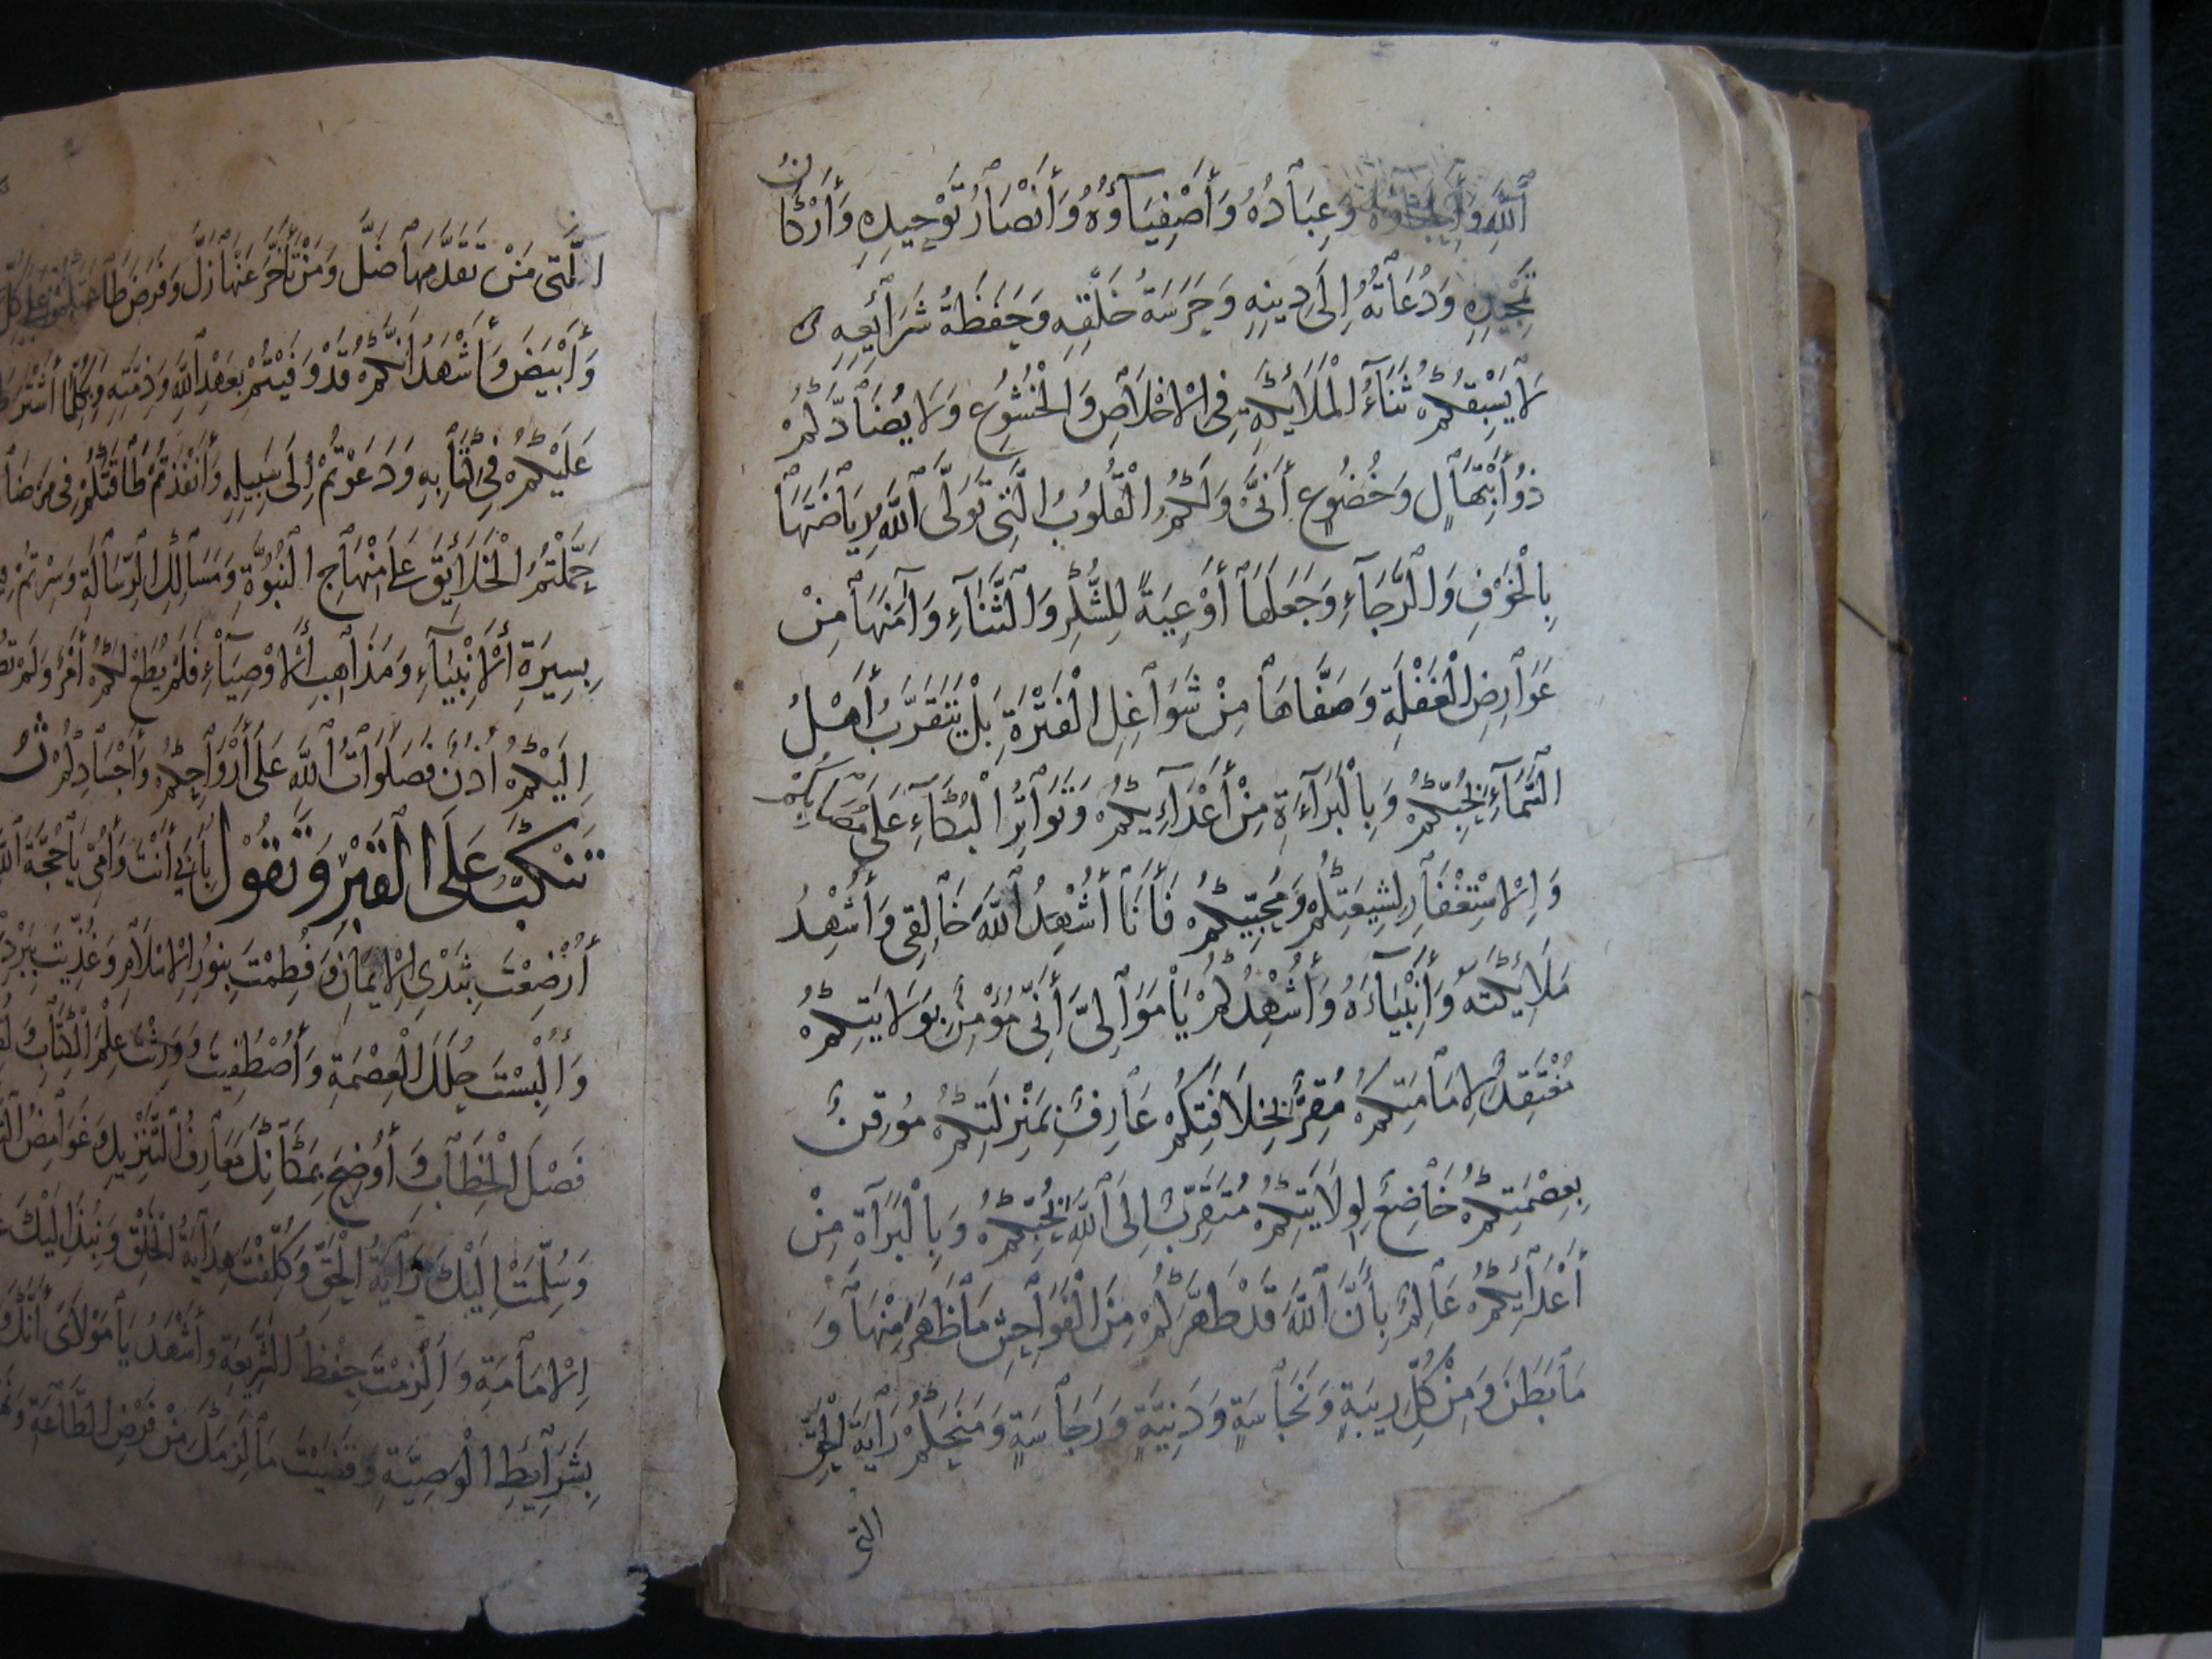 ٱللَّهِ وَأَحِبَّاؤُهُ وَعِبَادُهُ وَأَصْفِيَاؤُهُ وَأَنْصَارُ تَوْحِيدِهِ وَأَرْكَانُ
تَمْجِيدِهِ وَدُعَاتُهُ إِلَى دِينِهِ وَحَرَسَةُ خَلْقِهِ وَحَفَظَةُ شَرَائِعِهِ
لَا يَسْبِقُكُمْ ثَنَاءُ الْمَلَائِكَةِ فِي الْإِخْلَاصِ وَالْخُشُوعِ وَلَا يُضَادُّكُمْ
ذُو ابْتِهَالٍ وَخُضُوعٍ أَنَّى وَلَكُمُ الْقُلُوبُ الَّتِي تَوَلَّى ٱللَّهُ رِيَاضَتَهَا
بِالْخَوْفِ وَالرَّجَاءِ وَجَعَلَهَا أَوْعِيَةً لِلشُّكْرِ وَالثَّنَاءِ وَآمَنَهَا مِنْ
عَوَارِضِ الْغَفْلَةِ وَصَفَّاهَا مِنْ شَوَاغِلِ الْفَتْرَةِ بَلْ يَتَقَرَّبُ أَهْلُ
السَّمَاءِ بِحُبِّكُمْ وَبِالْبَرَاءَةِ مِنْ أَعْدَائِكُمْ وَتَوَاتُرِ الْبُكَاءِ عَلَى مُصَابِكُمْ
وَالْإِسْتِغْفَارِ لِشِيعَتِكُمْ وَمُحِبِّيكُمْ فَأَنَا أُشْهِدُ ٱللَّهَ خَالِقِي وَأُشْهِدُ
مَلَائِكَتَهُ وَأَنْبِيَاءَهُ وَأُشْهِدُكُمْ يَا مَوَالِيَّ أَنِّي مُؤْمِنٌ بِوَلَايَتِكُمْ
مُعْتَقِدٌ لِإِمَامَتِكُمْ مُقِرٌّ بِخِلَافَتِكُمْ عَارِفٌ بِمَنْزِلَتِكُمْ مُوقِنٌ
بِعِصْمَتِكُمْ خَاضِعٌ لِوِلَايَتِكُمْ مُتَقَرِّبٌ إِلَى ٱللَّهِ بِحُبِّكُمْ وَبِالْبَرَاةِ مِنْ
أَعْدَائِكُمْ عَالِمٌ بِأَنَّ ٱللَّهَ قَدْ طَهَّرَكُمْ مِنَ الْفَوَاحِشِ مَا ظَهَرَ مِنْهَا وَ
مَا بَطَنَ وَمِنْ كُلِّ رِيبَةٍ وَنَجَاسَةٍ وَدَنِيَّةٍ وَرَجَاسَةٍ وَمَنَحَكُمْ رَايَةَ الْحَقِّ
التي
الَّتِي مَنْ تَقَدَّمَهَا ضَلَّ وَمَنْ تَأَخَّرَ عَنْهَا زَلَّ وَفَرَضَ طَاعَتَكُمْ عَلَى كُلِّ
وَأَبْيَضَ وَأَشْهَدُ أَنَّكُمْ قَدْ وَفَيْتُمْ بِعَهْدِ ٱللَّهِ وَذِمَّتِهِ وَبِكُلِّ مَا اشْتَرَطَ
عَلَيْكُمْ فِي كِتَابِهِ وَدَعَوْتُمْ إِلَى سَبِيلِهِ وَأَنْفَذْتُمْ طَاقَتَكُمْ فِي مَرْضَا
حَمَّلْتُمُ الْخَلَائِقَ عَلَى مِنْهَاجِ النُّبُوَّةِ وَمَسَالِكِ الرِّسَالَةِ وَسِرْتُمْ
بِسِيرَةِ الْأَنْبِيَاءِ وَمَذَاهِبِ الْأَوْصِيَاءِ فَلَمْ يُطَعْ لَكُمْ أَمْرٌ وَلَمْ
إِلَيْكُمْ أُذُنٌ فَصَلَوَاتُ ٱللَّهِ عَلَى أَرْوَاحِكُمْ وَأَجْسَادِكُمْ
تَنْكَبُّ عَلَى الْقَبْرِ وَتَقُولُ بِأَبِي أَنْتَ وَأُمِّي يَا حُجَّةَ ٱللَّهِ
أُرْضِعْتَ بِثَدْيِ الْإِيمَانِ وَفُطِمْتَ بِنُورِ الْإِسْلَامِ وَغُذِّيتَ بِبَرْدِ
وَأُلْبِسْتَ حُلَلَ الْعِصْمَةِ وَاصْطُفِيتَ وَوُرِّثْتَ عِلْمَ الْكِتَابِ وَ
فَصْلَ الْخِطَابِ وَأُوضِحَ بِمَكَانِكَ مَعَارِفُ التَّنْزِيلِ وَغَوَامِضُ
وَسُلِّمَتْ إِلَيْكَ رَايَةُ الْحَقِّ وَكُلِّفْتَ هِدَايَةَ الْخَلْقِ وَنُبِذَ إِلَيْكَ
الْإِمَامَةِ وَأُلْزِمْتَ حِفْظَ الشَّرِيعَةِ وَأَشْهَدُ يَا مَوْلَايَ أَنَّكَ
بِشَرَائِطِ الْوَصِيَّةِ وَقَضَيْتَ مَا لَزِمَكَ مِنْ فَرْضِ الطَّاعَةِ